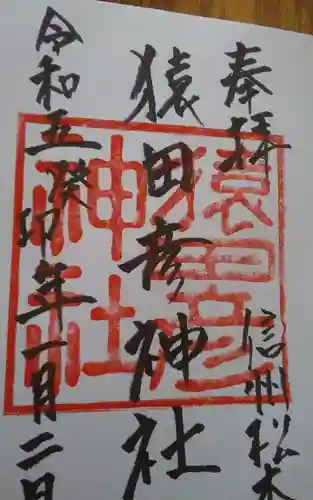 奉拝
信州松本
猿田彦神社
令和五癸卯年一月二日
猿田彦
神社